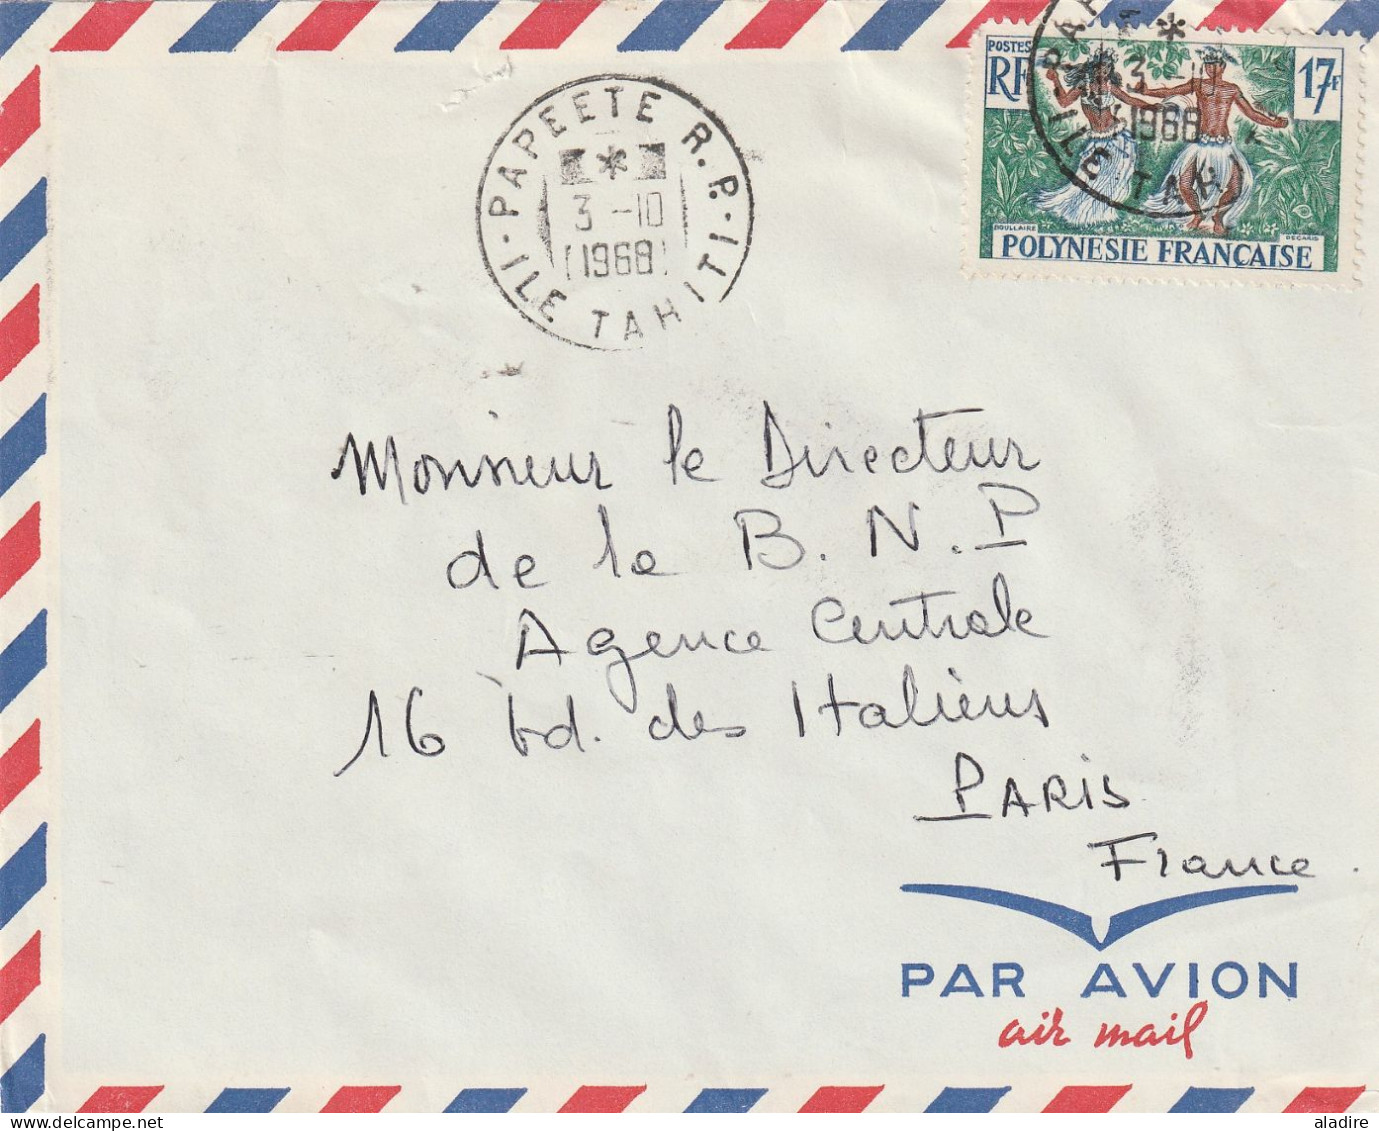 PAPEETE R.P. - ILE TAHITI -
* 
3 -10
1968
POSTES
RF
17F
3 -10
1968
ILE TAH
DOULLAIRE
DECARIS
POLYNESIE FRANÇAISE
Monsieur le Directeur
de la B. N. P
Agence Centrale
16 bd. des Italiens
PARIS
France.
PAR AVION
air mail
aladire